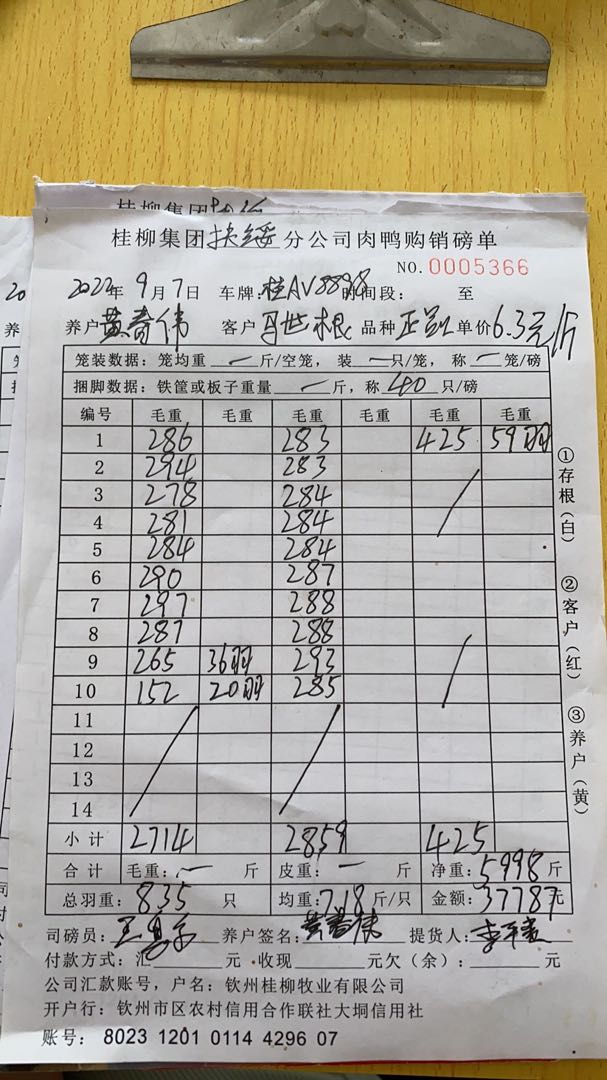 桂柳集团扶绥分公司肉鸭购销磅单
NO.0005366
2022年 9月7日 车牌:桂AV889 时间段: 至
养户 黄春伟 客户 马世根 品种 正品 单价6.3元/斤
笼装数据:笼均重 一 斤/空笼,装 一 只/笼,称 一 笼/磅
捆脚数据:铁筐或板子重量 一 斤,称 40 只/磅
编号 毛重 毛重 毛重 毛重 毛重 毛重
1 286 283 425 59羽
2 294 283
3 278 284
4 281 284
5 284 284
6 290 287
7 297 288
8 287 288
9 265 36羽 293
10 152 20羽 285
11
12
13
14
小计 2714 2859 425
合计 毛重: 一 斤 皮重: 一 斤 净重:5998斤
总羽重:835 只 均重:7.18斤/只 金额:37787元
司磅员: 养户签名:黄春伟 提货人:
付款方式:汇 元 收现 元欠(余): 元
公司汇款账号,户名:钦州桂柳牧业有限公司
开户行:钦州市区农村信用合作联社大垌信用社
账号:8023 1201 0114 4296 07
①存根(白)
②客户(红)
③养户(黄)
桂柳集团
20
养